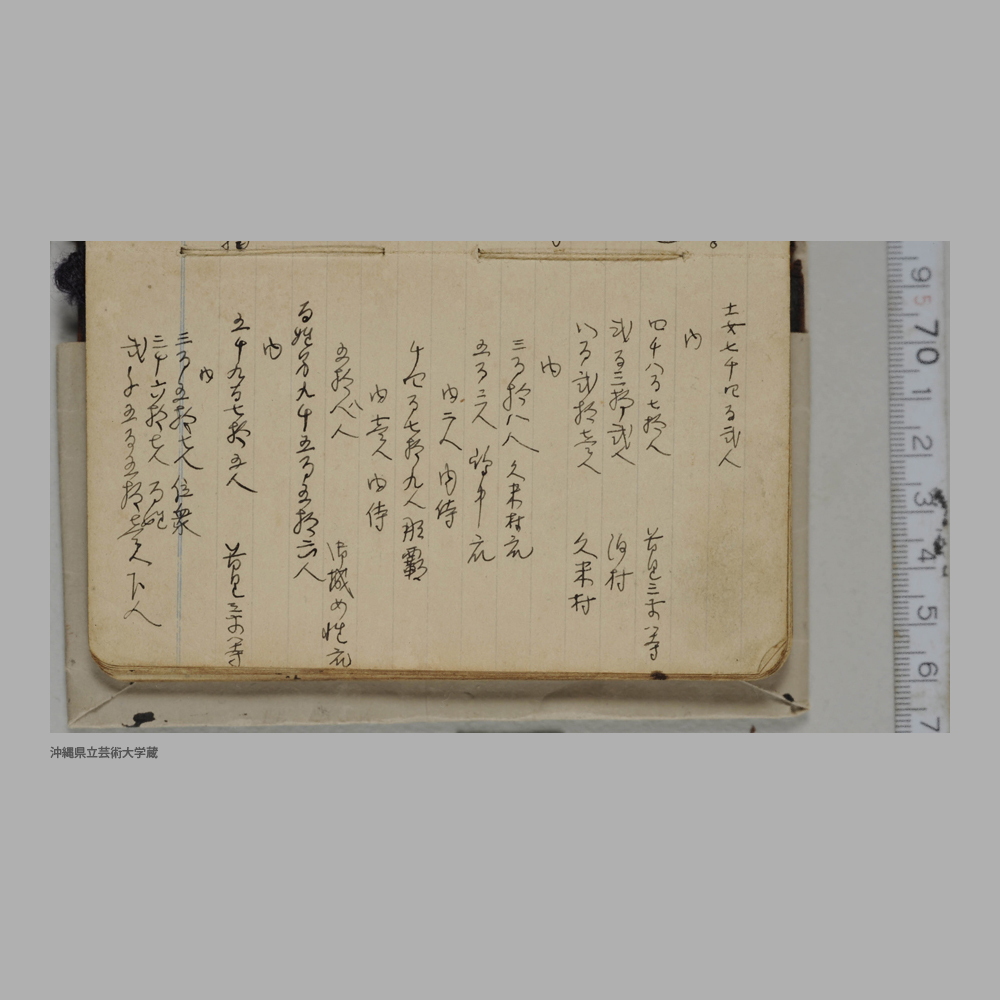 士女七千四百弐人
内
四千八百七拾人 首里三平等
弐百三拾弐人 泊村
八百弐拾壱人 久米村
内
三百拾八人 久米村
五百三人
内二人 内侍
千四百七拾九人 那覇
内壱人 内侍
五拾八人 城
百姓万九千五百五拾六人
内
五千九百七拾五人 首里三平等
内
三百五拾七人 位衆
三千六拾七人 百姓
弐千五百五拾壱人 下人
沖縄県立芸術大学蔵